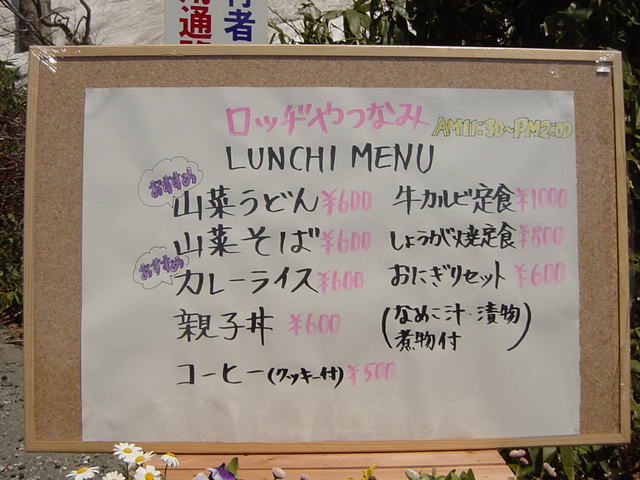 行者
用通路
ロッヂやつなみ
AM11:30~PM2:00
LUNCHI MENU
おすすめ
山菜うどん ¥600
山菜そば ¥600
おすすめ
カレーライス ¥600
親子丼 ¥600
コーヒー(クッキー付) ¥500
牛カルビ定食 ¥1000
しょうが焼定食 ¥800
おにぎりセット ¥600
(なめこ汁・漬物
煮物付)